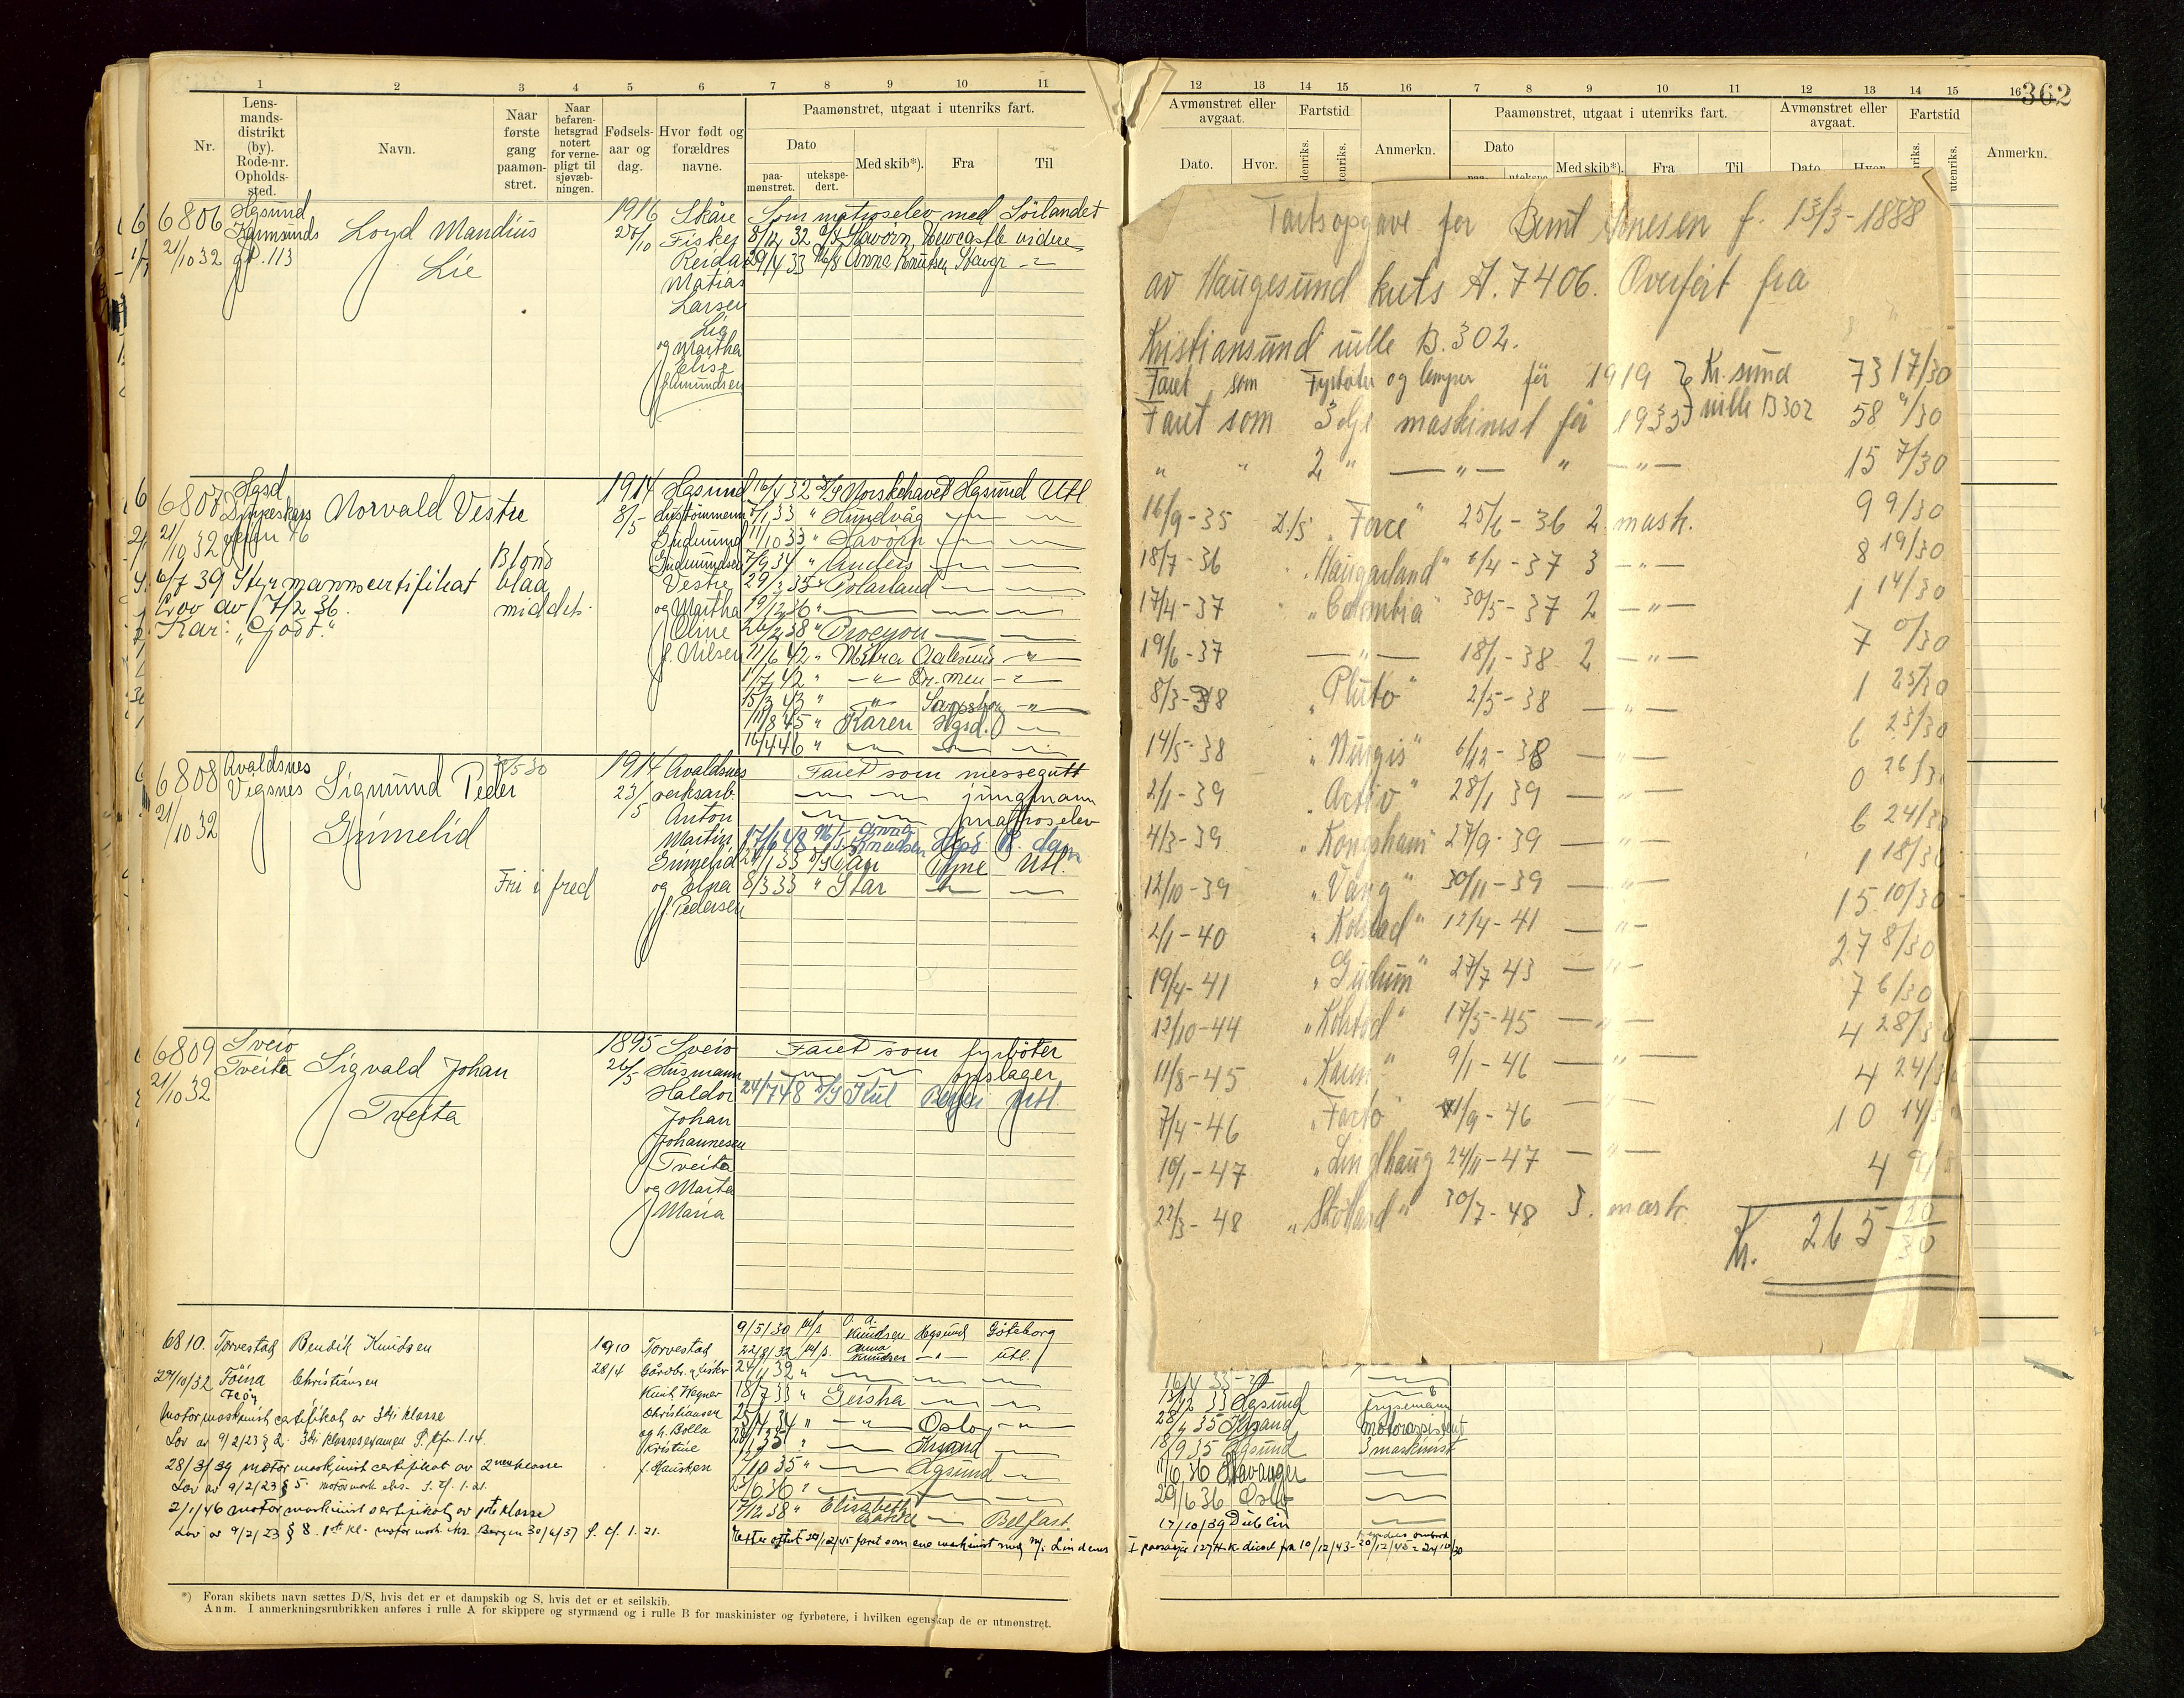 362
1 2 3 4 5 6 7 8 9 10 11
Nr.
Lens-
mands-
distrikt
(by).
Rode-nr.
Opholds-
sted.
Navn.
Naar
første
gang
paamøn-
stret.
Naar
befaren-
hetsgrad
notert
for verne-
pligt til
sjøvæb-
ningen.
Fødsels-
aar og
dag.
Hvor født og
forældres
navne.
Paamønstret, utgaat i utenriks fart.
Dato
paa-
mønstret.
utekspe-
dert.
Med skib*).
Fra
Til
6806 Hgsund
Karmsunds
21/10 32 gt. 113
Loyd Mandius
Lie
1916
27/10
Skåre
Fisker
Reidar
Matias
Larsen
Lie
og Martha
Elise
f. Amundsen
Som matroselev med Sørlandet
8/12 32 D/S Havørn, Newcastle videre
29/4 33 M/S Anna Knudsen Stavgr
6807 Hgsd
21/10 32
Norvald Vestre
Blond
blaa
middels
6/7 39 Styrmannscertifikat
Lov av 17/2 36.
Kar: "Godt."
1914
8/5
Hgsund
Gudmund
Gudmundsen
Vestre
og Martha
Oline
f. Nilsen
16/4 32 D/S Norskehavet Hgsund Utl
7/1 33 " Hundvåg
11/10 33 " Havørn
7/9 34 " Anders
29/3 35 " Polarland
19/12 36 "
26/2 38 " Procyon
11/6 42 " Mitra Aalesund "
1/7 42 " " Dr.men "
15/3 43 " " Sarpsborg "
11/8 45 " Karen Hgsd.
16/4 46 "
6808 Avaldsnes
Vigsnes
21/10 32
Sigmund Peder
Grimelid
/5 30
Fri i fred
1914
23/5
Avaldsnes
verksarb.
Anton
Martin
Grimelid
og Elna
f. Pedersen
Faret som messegutt
jungmann
matroselev
17/6 48 M/S Anna Knudsen Hgsd R.dam
1 33 D/S Tyne Utl.
8/3 33 " Star
6809 Sveio
Tveita
21/10 32
Sigvald Johan
Tveita
1895
26/5
Sveio
Husmann
Haldor
Johan
Johannesen
Tveita
og Marta
Maria
Faret som fyrbøter
opslager
24/7 48 D/S Bergen Utl.
6810. Torvestad
29/10/32 Föina
Bendik Knudsen
Christiansen
1910
28/4
Torvestad
Gårdbr. & fisker
Knut Wegner
Christiansen
og h. Bolla
Kristine
f. Hausken
Motormaskinist certifikat av 3die klasse
Lov av 9/2/23 § 2. 3die klassesexamen
28/3/39 motormaskinist certifikat av 2nen klasse
Lov av 9/2/23 § 5.
2/1/46 motormaskinist certifikat av 1ste klasse
Lov av 9/2/23 § 8. 1ste kl. motormask. eks. Bergen 30/6/37
9/5/30 M/S O. A. Knudsen Hgsund Göteborg
22/8/32 M/S Anna Knudsen " utl.
24/1 32 "
18/7 33 " Geisha
25/4 34 " " Oslo "
Krsand
7/10 35 " Hgsund
15/6 36 "
17/12 38 " Elisabeth Bakke Belfast.
*) Foran skibets navn sættes D/S, hvis det er et dampskib og S, hvis det er et seilskib.
Anm. I anmerkningsrubrikken anføres i rulle A for skippere og styrmænd og i rulle B for maskinister og fyrbøtere, i hvilken egenskap de er utmønstret.
12 13 14 15 16 7 8 9 10 11 12 13 14 15 16
Avmønstret eller
avgaat.
Fartstid
Dato. Hvor.
Anmerkn.
Paamønstret, utgaat i utenriks fart.
Dato
Med skib*). Fra Til
Avmønstret eller
avgaat.
Dato Hvor
Fartstid
Anmerkn.
Fartsopgave for Bernt Arnesen f. 13/3-1888
av Haugesund krets A.7406. Overført fra
Kristiansund rulle B.302.
Faret som Fyrbøter og lemper før 1919 } Kr.sund 73 17/30
Faret som 3dje maskinist før 1933 } rulle B 302 58 9/30
" " 2 " — " — " — " — 15 7/30
16/9-35 D/S "Force" 25/6-36 2. mask. 9 9/30
18/7-36 "Haugarland" 6/4-37 3 — " — 8 19/30
17/4-37 "Colombia" 30/5-37 2 — " — 1 14/30
19/6-37 — " — 18/1-38 2 — " — 7 0/30
8/3-38 "Pluto" 2/5-38 — " — 1 25/30
14/5-38 "Nurgis" 6/12-38 — " — 6 23/30
2/1-39 "Activ" 28/1 39 — " — 0 26/30
4/3-39 "Kongshavn" 27/9-39 — " — 6 24/30
12/10-39 "Varg" 30/11-39 — " — 1 18/30
2/1-40 "Kolstad" 12/4-41 — " — 15 10/30
19/4-41 "Gudrun" 27/7 43 — " — 27 8/30
12/10-44 "Kolstad" 17/5-45 — " — 7 6/30
11/8-45 "Karen" 9/1-46 — " — 4 28/30
7/4-46 "Facto" 1/9-46 — " — 4 24/30
10/1-47 "Lindhaug" 24/11-47 — " — 10 14/30
22/3-48 "Stokland" 30/7-48 3. mask. 4 9/
Kr. 265 20/30
16/4 33
13/12 33 Hgsund frysemann
28/4 35 Krsand motorassistent
18/9 35 Hgsund 3 maskinist
1/6 36 Stavanger
29/6 36 Oslo
17/10/39 Dublin